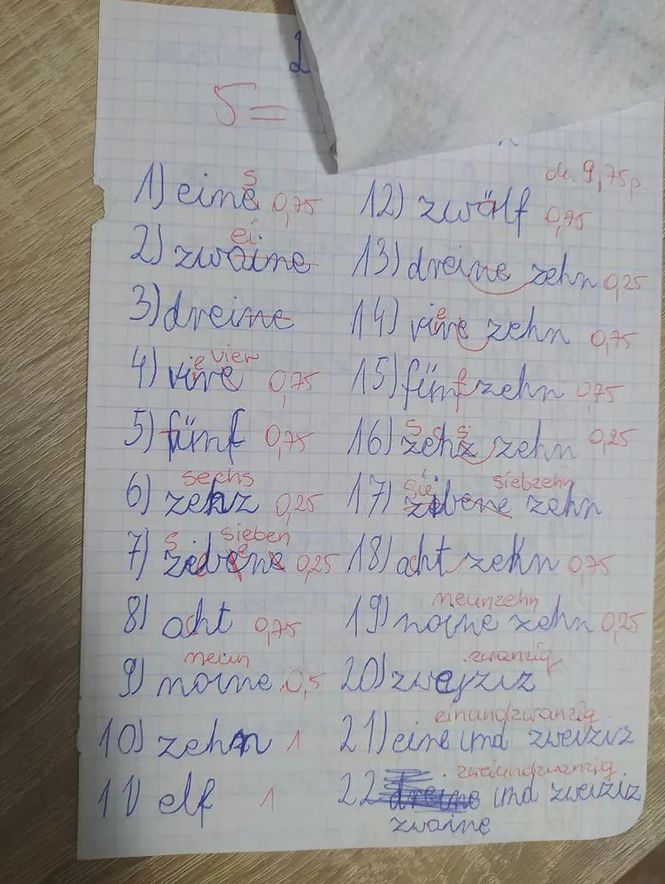 5=
dk. 9,75p.
1) eine s 0,75
ei
2) zwaine
3) dreine
e vier
4) vire 0,75
5) fünf 0,75
sechs
6) zehz 0,25
s sieben
7) zibene 0,25
8) acht 0,75
neun
9) noine 0,5
10) zehn 1
11) elf 1
12) zwölf 0,75
13) dreine zehn 0,25
e
14) vire zehn 0,75
f
15) fünfzehn 0,75
s s
16) zehz zehn 0,25
sie siebzehn
17) zibene zehn
18) acht zehn 0,75
neunzehn
19) noine zehn 0,25
zwanzig
20) zwejziz
einundzwanzig
21) eine und zweiziz
zweiundzwanzig
22 dreine und zweiziz
zwaine